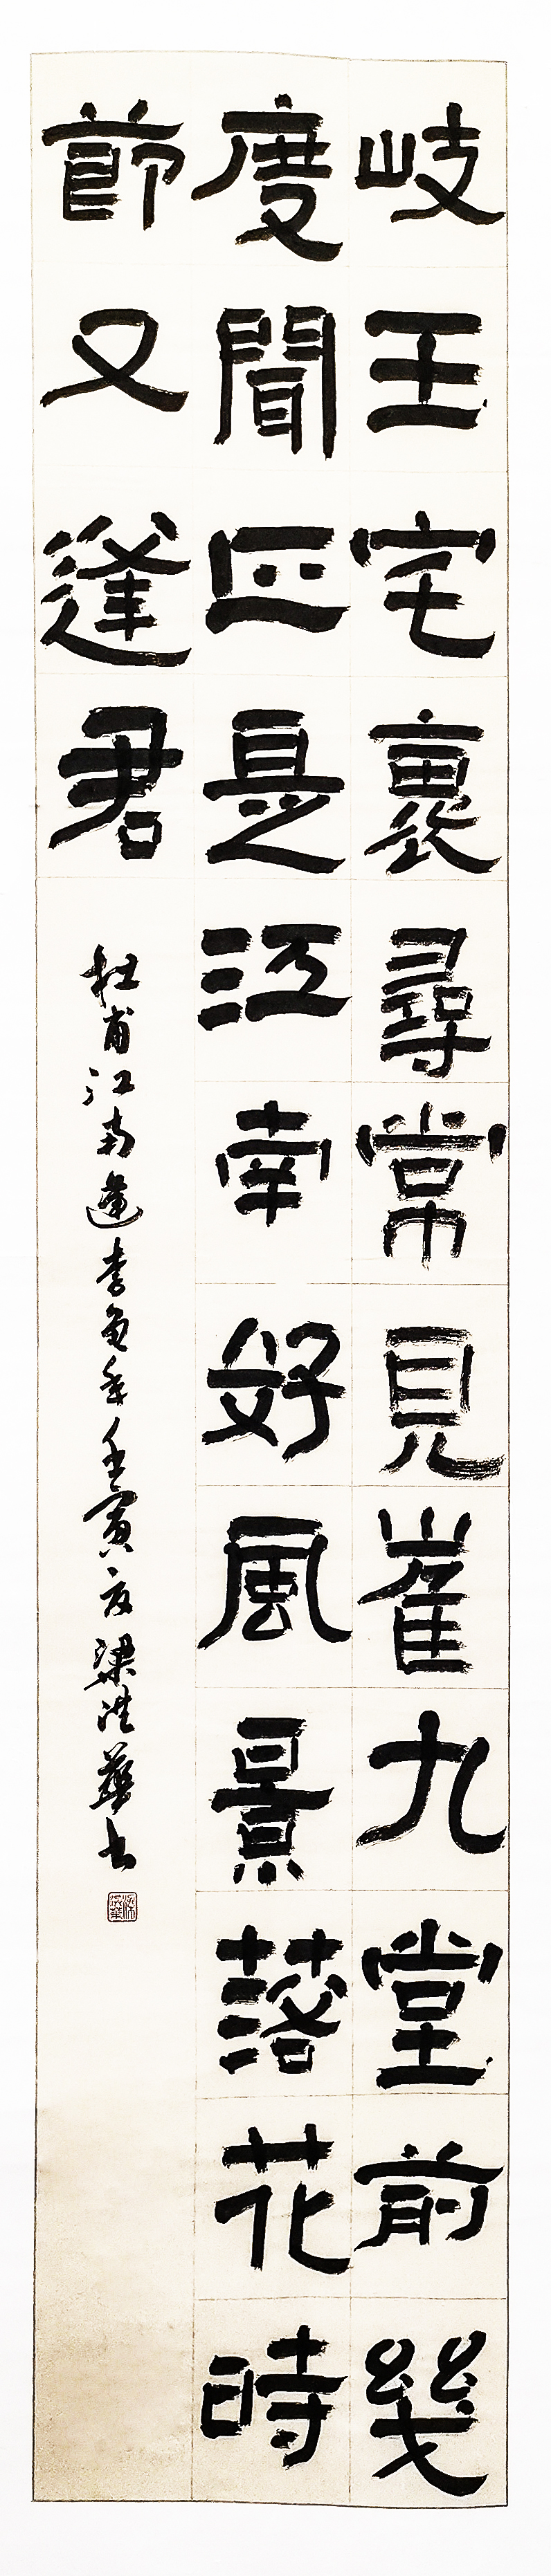 岐王宅裏尋常見崔九堂前幾
度聞正是江南好風景落花時
節又逢君
杜甫江南逢李龜年壬寅夏梁洪華书